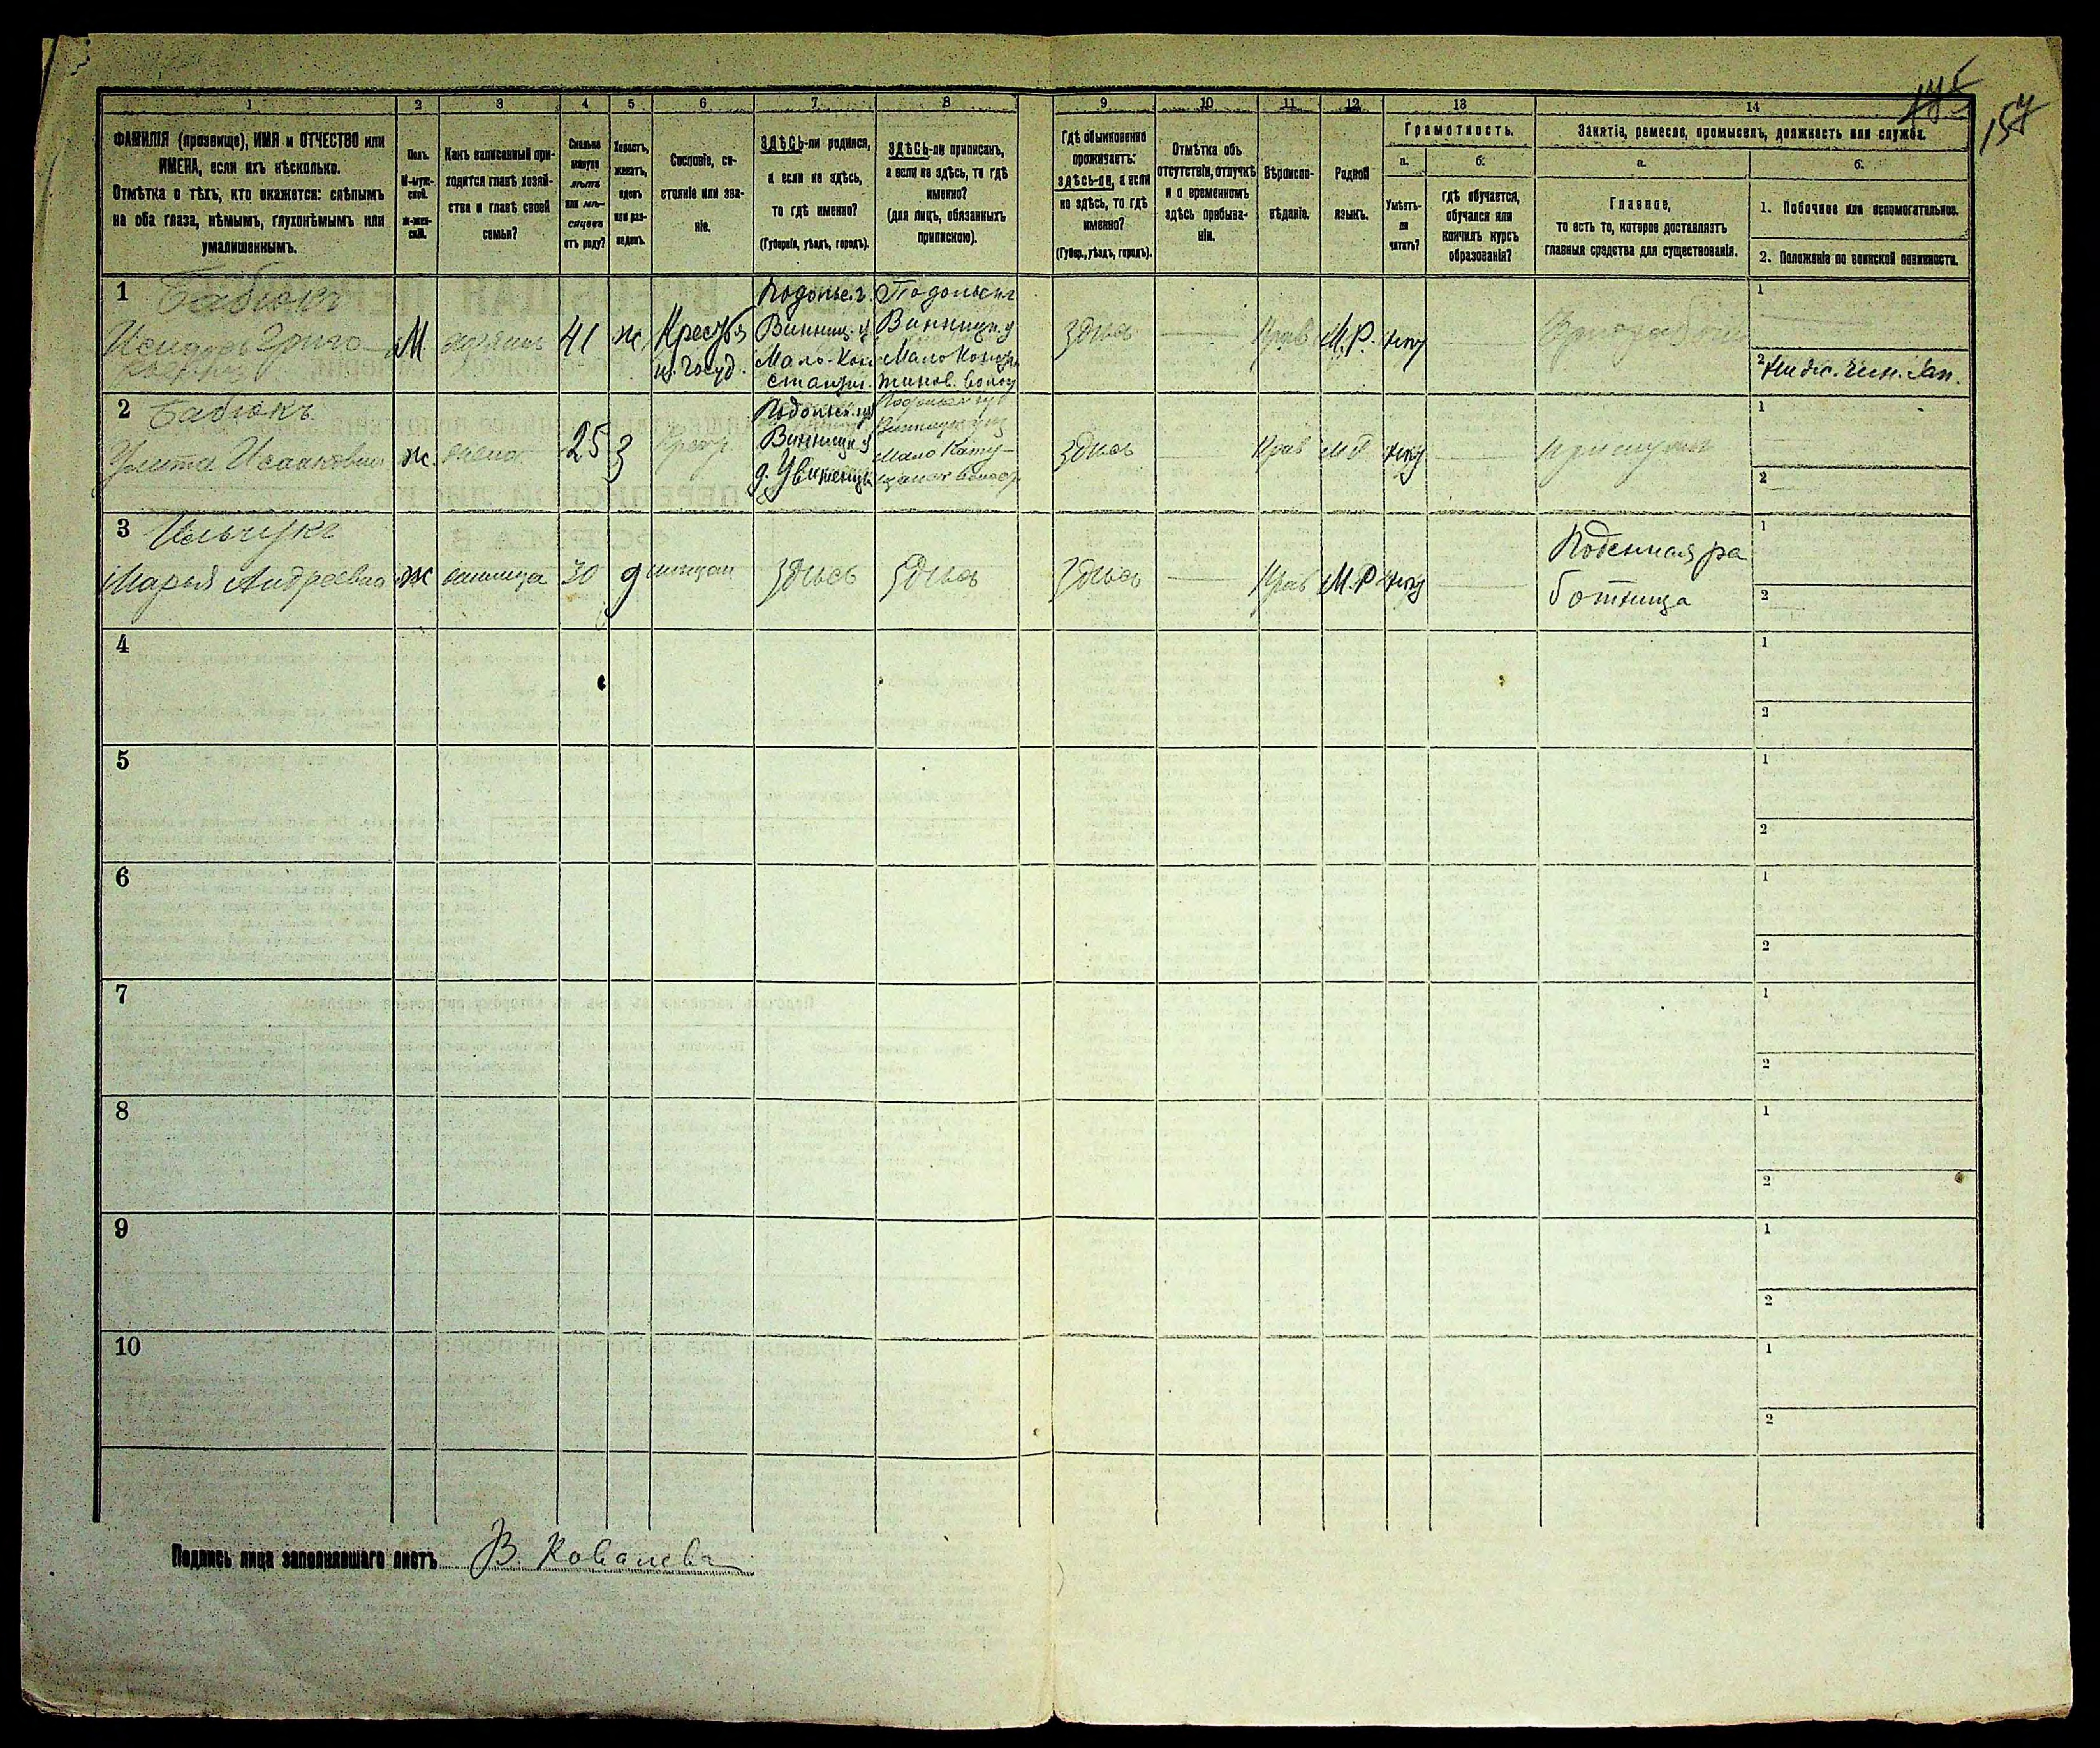 157
1 2 3 4 5 6 7 8 9 10 11 12 13 14
ФАМИЛІЯ (прозвище), ИМЯ и ОТЧЕСТВО или
ИМЕНА, если ихъ нѣсколько.
Отмѣтка о тѣхъ, кто окажется: слѣпымъ
на оба глаза, нѣмымъ, глухонѣмымъ или
умалишеннымъ.
Полъ.
М-муж-
ской.
Ж-жен-
скій.
Какъ записанный при-
ходится главѣ хозяй-
ства и главѣ своей
семьи?
Сколько
минуло
лѣтъ
или мѣ-
сяцевъ
отъ роду?
Холостъ,
женатъ,
вдовъ
или раз-
веденъ.
Сословіе, со-
стояніе или зва-
ніе.
ЗДѢСЬ-ли родился,
а если не здѣсь,
то гдѣ именно?
(Губернія, уѣздъ, городъ).
ЗДѢСЬ-ли приписанъ,
а если не здѣсь, то гдѣ
именно?
(для лицъ, обязанныхъ
припискою).
Гдѣ обыкновенно
проживаетъ:
здѣсь-ли, а если
не здѣсь, то гдѣ
именно?
(Губер., уѣздъ, городъ).
Отмѣтка объ
отсутствіи, отлучкѣ
и о временномъ
здѣсь пребыва-
ніи.
Вѣроиспо-
вѣданіе.
Родной
языкъ.
Грамотность.
а.
Умѣетъ-
ли
читать?
б.
гдѣ обучается,
обучался или
кончилъ курсъ
образованія?
Занятіе, ремесло, промыселъ, должность или служба.
а.
Главное,
то есть то, которое доставляетъ
главныя средства для существованія.
б.
1. Побочное или вспомогательное.
2. Положеніе по воинской повинности.
1 Бабюкъ
Исидоръ Григо-
М хозяинъ 41 ж Крест.
Подольс. г.
Винниц. у
Мало-Кон
стант.
Подольск г
Винницк. у
здѣсь Прав М.Р. нѣт
1
2
2 Бабюкъ
Улита Исааковна ж. жена 25 З Крест.
Подольск. гу
Винницк. у
здѣсь Прав М Р нѣт
1
2
3 Ильчукъ
Марья Андреевна ж 30 9 мѣщан здѣсь здѣсь здѣсь Прав М.Р нѣт
Поденная ра
ботница
1
2
4 1
2
5 1
2
6 1
2
7 1
2
8 1
2
9 1
2
10 1
2
Подпись лица заполнявшаго листъ В. Ковалевъ